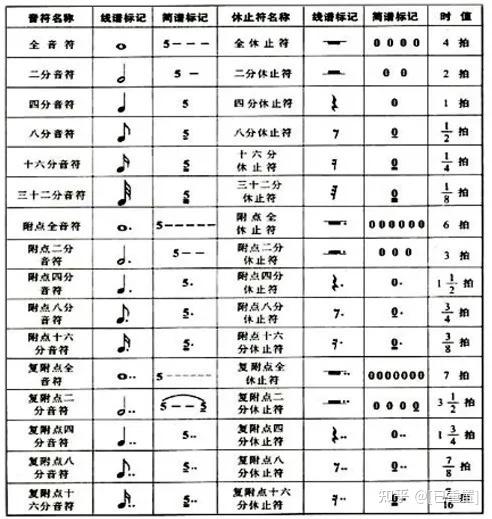 音符名称 线谱标记 简谱标记 休止符名称 线谱标记 简谱标记 时 值
全 音 符 5 - - - 全 休 止 符 0 0 0 0 4 拍
二分音符 5 - 二分休止符 0 0 2 拍
四分音符 5 四分休止符 0 1 拍
八分音符 5 八分休止符 0 1/2 拍
十六分音符 5 十六分休止符 0 1/4 拍
三十二分音符 5 三十二分休止符 0 1/8 拍
附点全音符 5 - - - - - 附点全休止符 000000 6 拍
附点二分音符 5 - - 附点二分休止符 0 0 0 3 拍
附点四分音符 5· 附点四分休止符 0· 1 1/2 拍
附点八分音符 5· 附点八分休止符 0· 3/4 拍
附点十六分音符 5· 附点十六分休止符 0· 3/8 拍
复附点全音符 5 - - - - - - 复附点全休止符 0000000 7 拍
复附点二分音符 5 - - 5 复附点二分休止符 0 0 0 0 3 1/2 拍
复附点四分音符 5·· 复附点四分休止符 0·· 1 3/4 拍
复附点八分音符 5·· 复附点八分休止符 0·· 7/8 拍
复附点十六分音符 5·· 复附点十六分休止符 0·· 7/16 拍
知乎